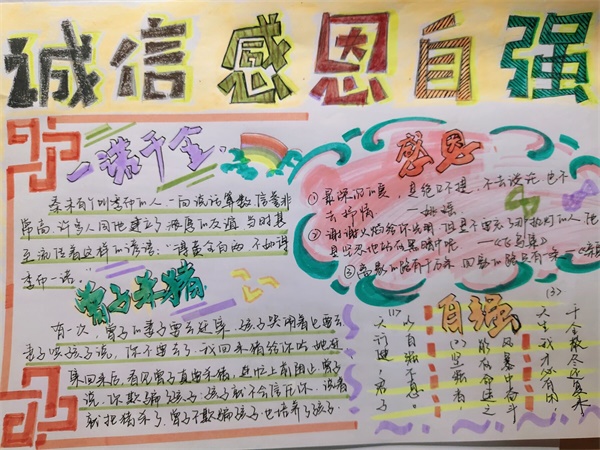 诚信感恩自强
一诺千金
秦末有个叫季布的人一向说话算数,信誉非
常高,许多人同他建立了深厚的友谊,当时甚
至流传着这样的谚语:"得黄金百两,不如得
季布一诺。"
曾子杀猪
有一次,曾子的妻子要去赶集,孩子哭闹着也要去
妻子哄孩子说,你不要去了,我回来杀猪给你吃,她赶
集回来后,看见曾子真要杀猪,连忙上前阻止,曾子
说,你欺骗了孩子,孩子就不会信任你,说着
就把猪杀了,曾子不欺骗孩子,也培养了孩子.
感恩
①最深沉的爱,是绝口不提,不去说完,也不
去抒情
②谢谢火焰给你光明,但是不要忘了那执灯的人,他
是坚忍地站在黑暗中呢 —《飞鸟集》
③
自强
(1)
天行健,君子
以自强不息。
(2)坚强者,
能在命运之
风暴中奋斗
(3)
天生我才必有用,
千金散尽还复来